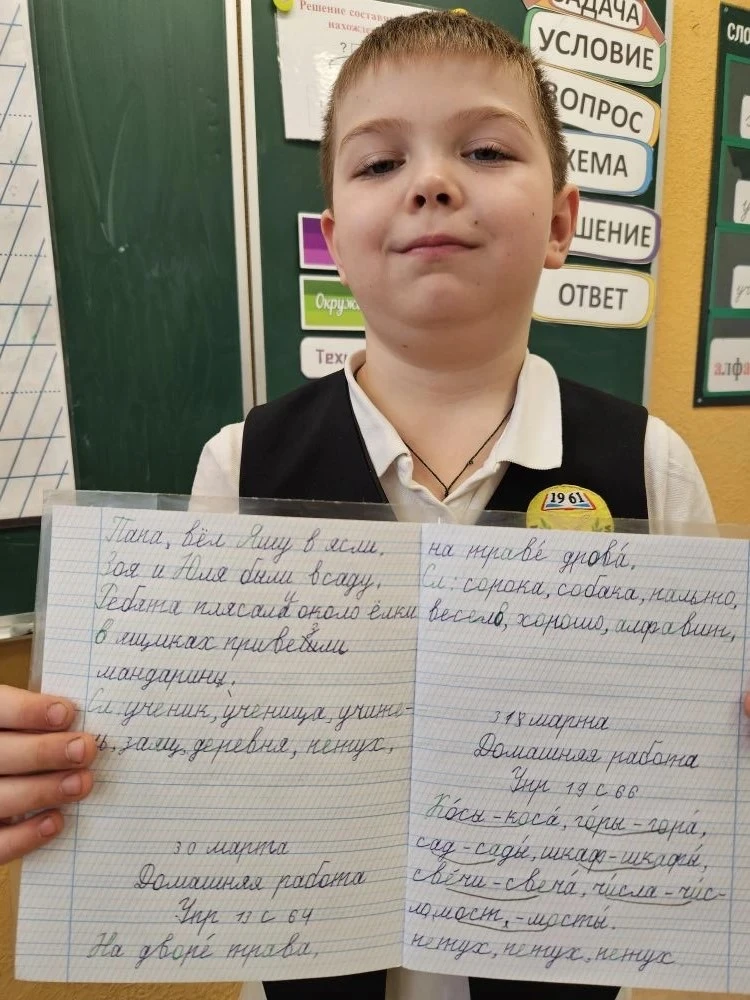 Решение состав
нахожд
?
ЗАДАЧА
УСЛОВИЕ
ВОПРОС
ХЕМА
ШЕНИЕ
ОТВЕТ
Окруж
Техн
СЛО
алфа
1961
Папа, вёл Яшу в ясли.
Зоя и Юля были в саду.
Ребята плясали около ёлки
в ящиках привезли
мандарины.
Сл. ученик, ученица, учите-
ль, заяц, деревня, петух.
30 марта
Домашняя работа
Упр 13 с 64
На дворе́ трава,
на траве́ дрова́.
Сл: сорока, собака, пальто,
весело, хорошо, алфавит,
31 марта
Домашняя работа
Упр 19 с 66
Ко́сы - коса́, го́ры - гора́,
сад - сады́, шкаф - шкафы́,
све́чи - свеча́, чи́сла - чис-
ло, мост, - мосты́.
петух, петух, петух